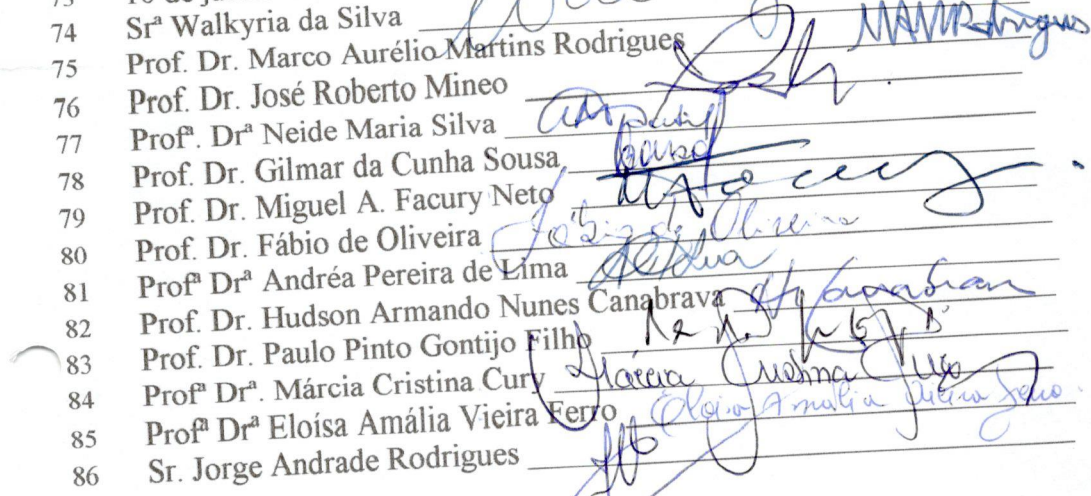 73
74 Srª Walkyria da Silva
75 Prof. Dr. Marco Aurélio Martins Rodrigues
76 Prof. Dr. José Roberto Mineo
77 Profª. Drª Neide Maria Silva
78 Prof. Dr. Gilmar da Cunha Sousa
79 Prof. Dr. Miguel A. Facury Neto
80 Prof. Dr. Fábio de Oliveira Fábio de Oliveira
81 Profª Drª Andréa Pereira de Lima
82 Prof. Dr. Hudson Armando Nunes Canabrava
83 Prof. Dr. Paulo Pinto Gontijo Filho
84 Profª Drª. Márcia Cristina Cury Márcia Cristina Cury
85 Profª Drª Eloísa Amália Vieira Ferro Eloisa Amália Vieira Ferro
86 Sr. Jorge Andrade Rodrigues